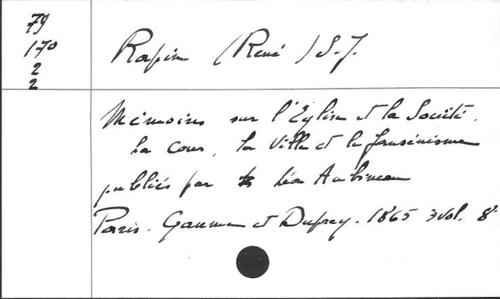 79
170
2
2
Rapin (René) S.J.
Mémoires sur l'Eglise et la Société.
la Cour, la Ville et le Jansénisme
publiés par Léon Aubineau
Paris. Gaume et Duprey. 1865 3 vol. 8°